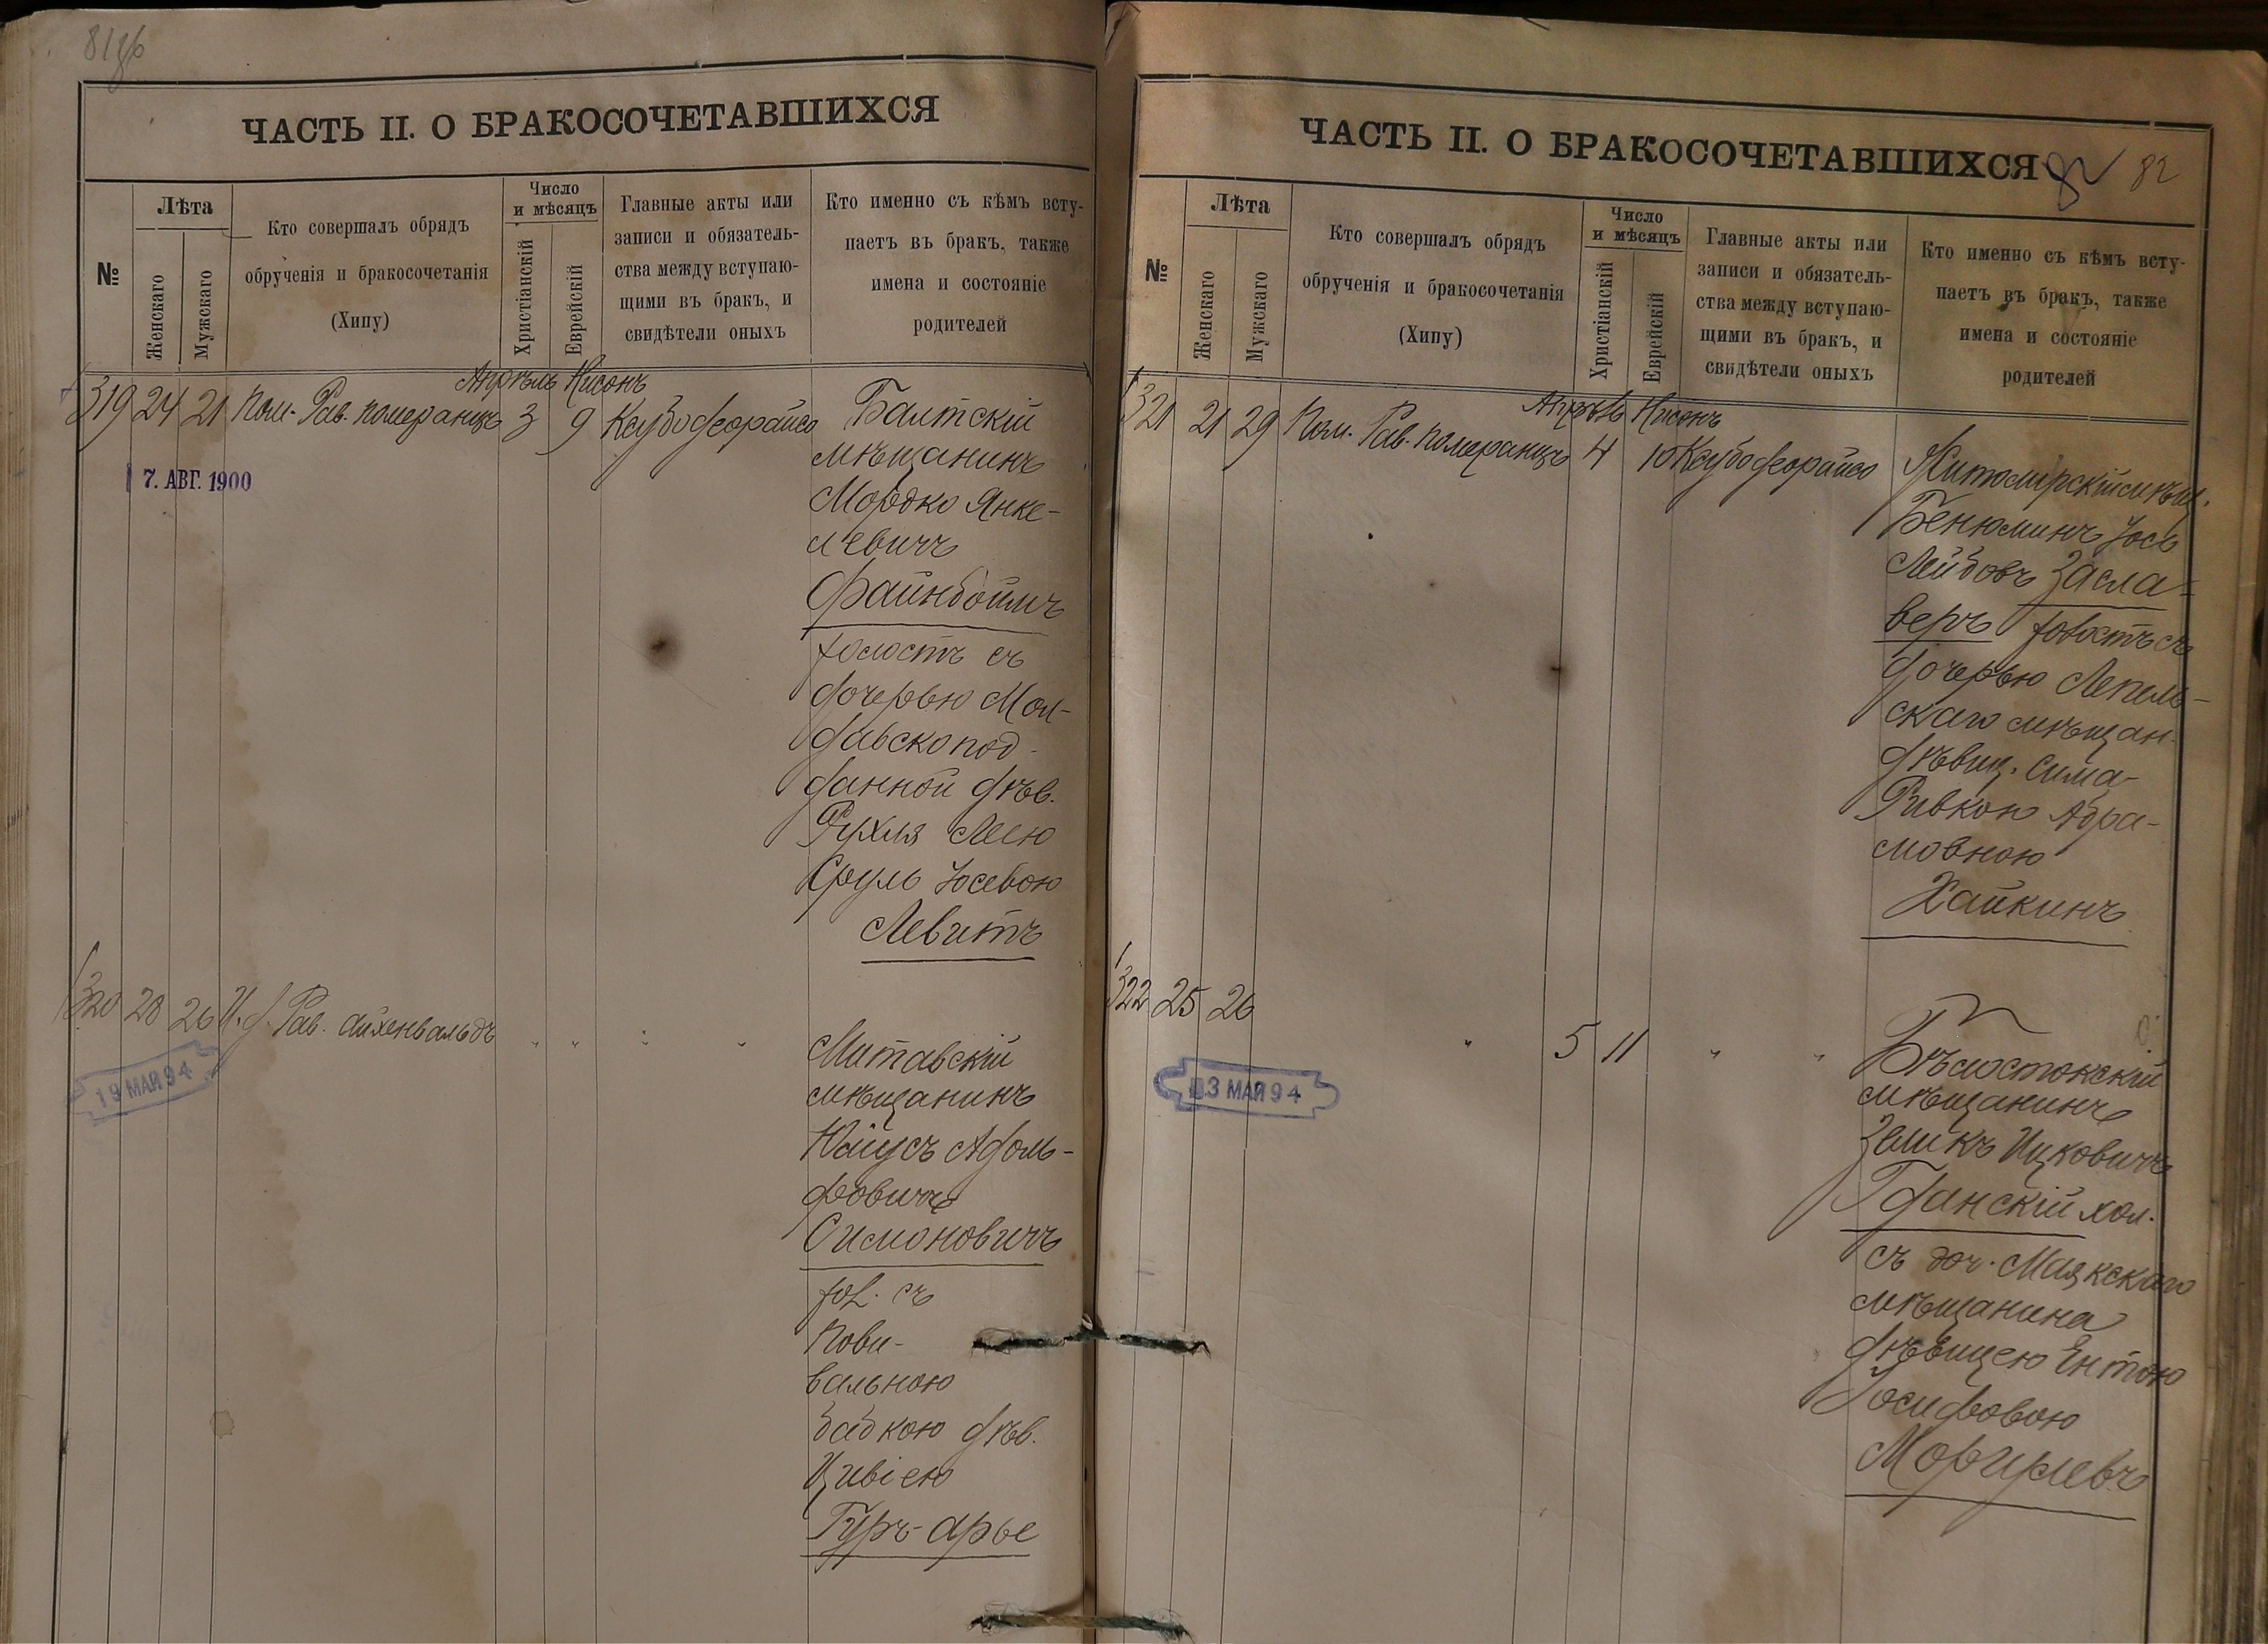 81об
ЧАСТЬ II. О БРАКОСОЧЕТАВШИХСЯ
№
Лѣта
Женскаго
Мужскаго
Кто совершалъ обрядъ
обрученія и бракосочетанія
(Хипу)
Число
и мѣсяцъ
Христіанскій
Еврейскій
Главные акты или
записи и обязатель-
ства между вступаю-
щими въ бракъ, и
свидѣтели оныхъ
Кто именно съ кѣмъ всту-
паетъ въ бракъ, также
имена и состояніе
родителей
Апрѣль Нисонъ
319 24 21 Пом. Рав. Померанцъ 3 9 Ксубофсорайсо Балтскій
мѣщанинъ
7. АВГ. 1900
Мордко Янке-
левичъ
Файнбоймъ
холостъ съ
дочерью Мол-
давскопод-
данной дѣв.
Рухля Леею
Сруль Іосевою
Левитъ
320 28 26 И.д. Рав. Айхенвальдъ " " " "
Митавскій
19 МАЙ 94
мѣщанинъ
Юлiусъ Адоль-
фовичъ
Симоновичъ
хол. съ
пови-
вальною
бабкою дѣв.
Цивіею
Гуръ-Арье
ЧАСТЬ II. О БРАКОСОЧЕТАВШИХСЯ
82 82
№
Лѣта
Женскаго
Мужскаго
Кто совершалъ обрядъ
обрученія и бракосочетанія
(Хипу)
Число
и мѣсяцъ
Христіанскій
Еврейскій
Главные акты или
записи и обязатель-
ства между вступаю-
щими въ бракъ, и
свидѣтели оныхъ
Кто именно съ кѣмъ всту-
паетъ въ бракъ, также
имена и состояніе
родителей
Апрѣль Нисонъ
321 21 29 Пом. Рав. Померанцъ 4 10 Ксубофсорайсо Житомірскій мѣщ.
Бенюминъ Іось
Лейбовъ Засла-
веръ холостъ съ
дочерью Лепель-
скаго мѣщан.
дѣвиц. Сима-
Ривкою Абра-
мовною
Хайкинъ
322 25 26 " 5 11 " "
Бѣлостокскій
мѣщанинъ
3 МАЙ 94
Зеликъ Ицковичъ
Гданскій хол.
съ доч. Маякскаго
мѣщанина
дѣвицею Ентою
Іосифовою